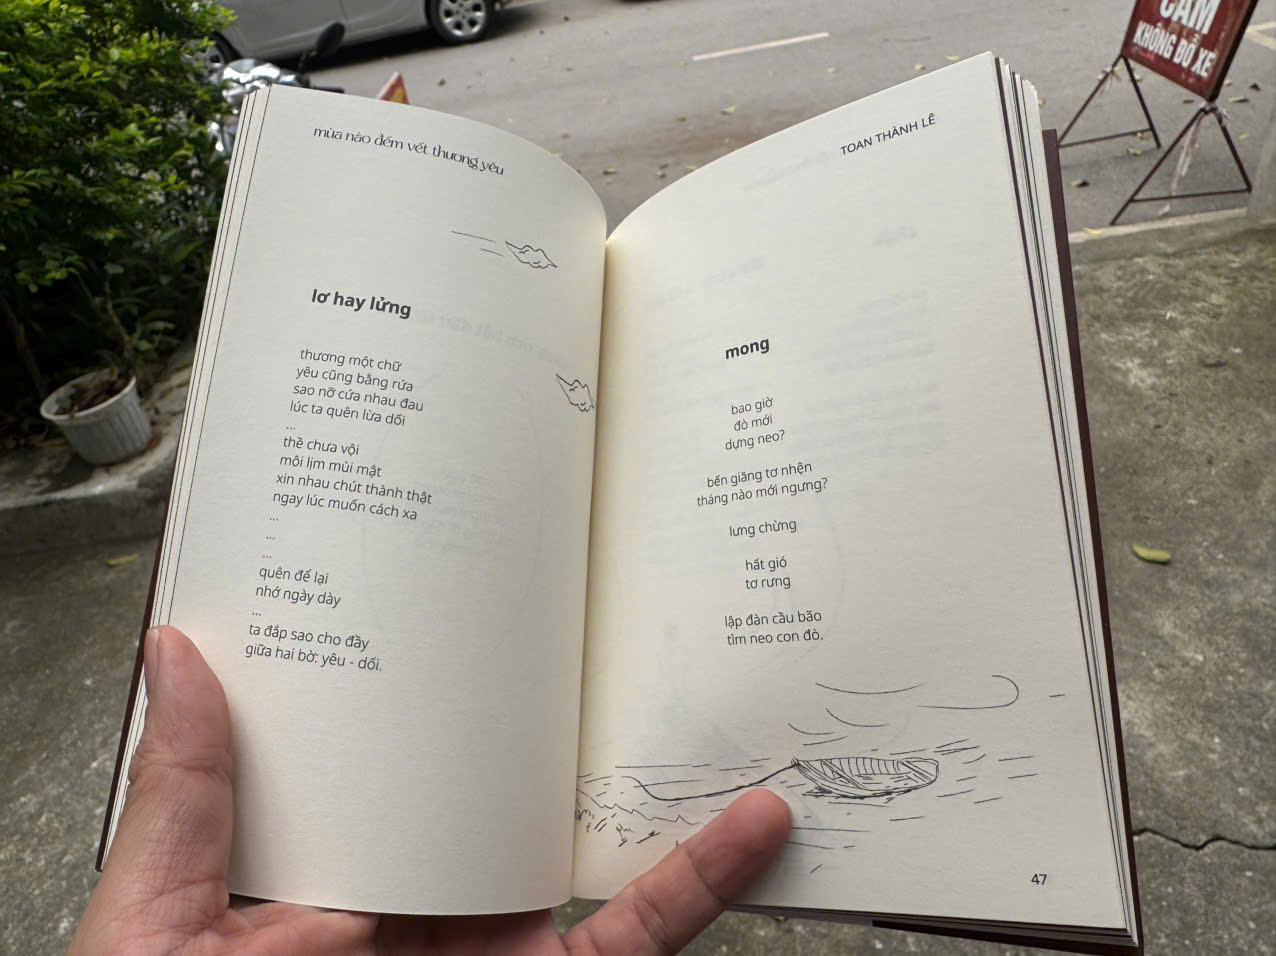 mùa nào đếm vết thương yêu
lơ hay lửng
thương một chữ
yêu cũng bằng rứa
sao nỡ cứa nhau đau
lúc ta quên lừa dối
...
thề chưa vội
môi lịm mùi mật
xin nhau chút thành thật
ngay lúc muốn cách xa
...
...
...
quên để lại
nhớ ngày dày
...
ta đắp sao cho đầy
giữa hai bờ: yêu - dối.
TOAN THÀNH LÊ
mong
bao giờ
đò mới
dựng neo?
bến giăng tơ nhện
tháng nào mới ngưng?
lưng chừng
hất gió
tơ rưng
lập đàn cầu bão
tìm neo con đò.
47
CẤM
KHÔNG ĐỖ XE